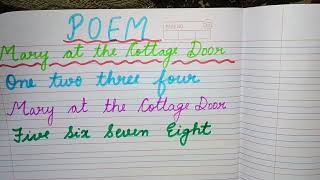 POEM
Mary at the Cottage Door
One two three four
Mary at the Cottage Door
Five Six Seven Eight